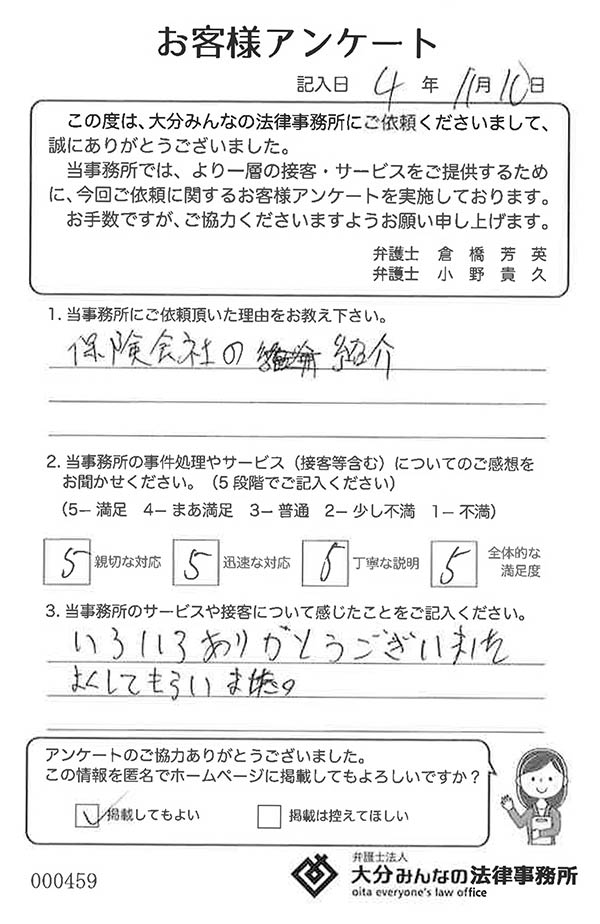 お客様アンケート
記入日 4 年 11月 10日
この度は、大分みんなの法律事務所にご依頼くださいまして、
誠にありがとうございました。
当事務所では、より一層の接客・サービスをご提供するため
に、今回ご依頼に関するお客様アンケートを実施しております。
お手数ですが、ご協力くださいますようお願い申し上げます。
弁護士 倉橋芳英
弁護士 小野貴久
1. 当事務所にご依頼頂いた理由をお教え下さい。
保険会社の 紹介
2. 当事務所の事件処理やサービス（接客等含む）についてのご感想を
お聞かせください。（5段階でご記入ください）
（5－満足 4－まあ満足 3－普通 2－少し不満 1－不満）
5 親切な対応 5 迅速な対応 5 丁寧な説明 5 全体的な
満足度
3. 当事務所のサービスや接客について感じたことをご記入ください。
いろいろありがとうございました
よくしてもらいました。
アンケートのご協力ありがとうございました。
この情報を匿名でホームページに掲載してもよろしいですか？
✓ 掲載してもよい □ 掲載は控えてほしい
000459
弁護士法人
大分みんなの法律事務所
oita everyone's law office